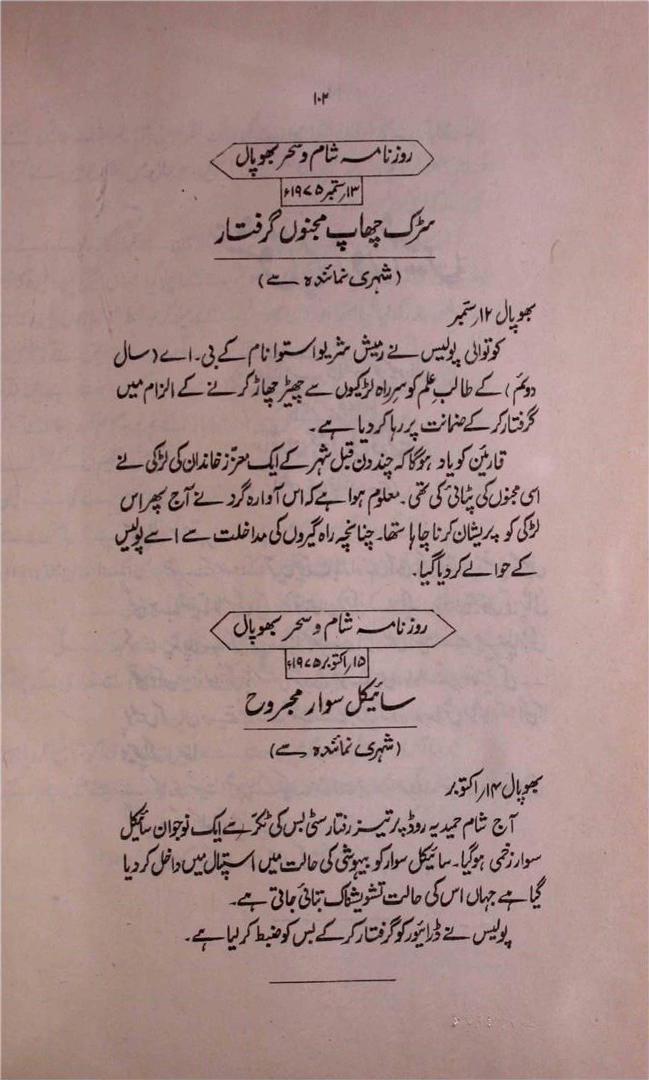 ۱۰۲
روزنامہ شام و سحر بھوپال
۱۳؍ستمبر ۱۹۷۵ء
سڑک چھاپ مجنوں گرفتار
(شہری نمائندہ سے)
بھوپال ۱۲؍ستمبر
کوتوالی پولیس نے رمیش شریواستوا نام کے بی۔اے (سال
دوئم) کے طالب علم کو سرِ راہ لڑکیوں سے چھیڑ چھاڑ کرنے کے الزام میں
گرفتار کر کے ضمانت پر رہا کر دیا ہے۔
قارئین کو یاد ہوگا کہ چند دن قبل شہر کے ایک معزز خاندان کی لڑکی نے
اسی مجنوں کی پٹائی کی تھی۔ معلوم ہوا ہے کہ اس آوارہ گرد نے آج پھر اس
لڑکی کو پریشان کرنا چاہا تھا۔ چنانچہ راہ گیروں کی مداخلت سے اسے پولیس
کے حوالے کر دیا گیا۔
روزنامہ شام و سحر بھوپال
۱۵؍اکتوبر ۱۹۷۵ء
سائیکل سوار مجروح
(شہری نمائندہ سے)
بھوپال ۱۴؍اکتوبر
آج شام حمیدیہ روڈ پر تیز رفتار سٹی بس کی ٹکر سے ایک نوجوان سائیکل
سوار زخمی ہوگیا۔ سائیکل سوار کو بیہوشی کی حالت میں اسپتال میں داخل کر دیا
گیا ہے جہاں اس کی حالت تشویشناک بتائی جاتی ہے۔
پولیس نے ڈرائیور کو گرفتار کر کے بس کو ضبط کر لیا ہے۔